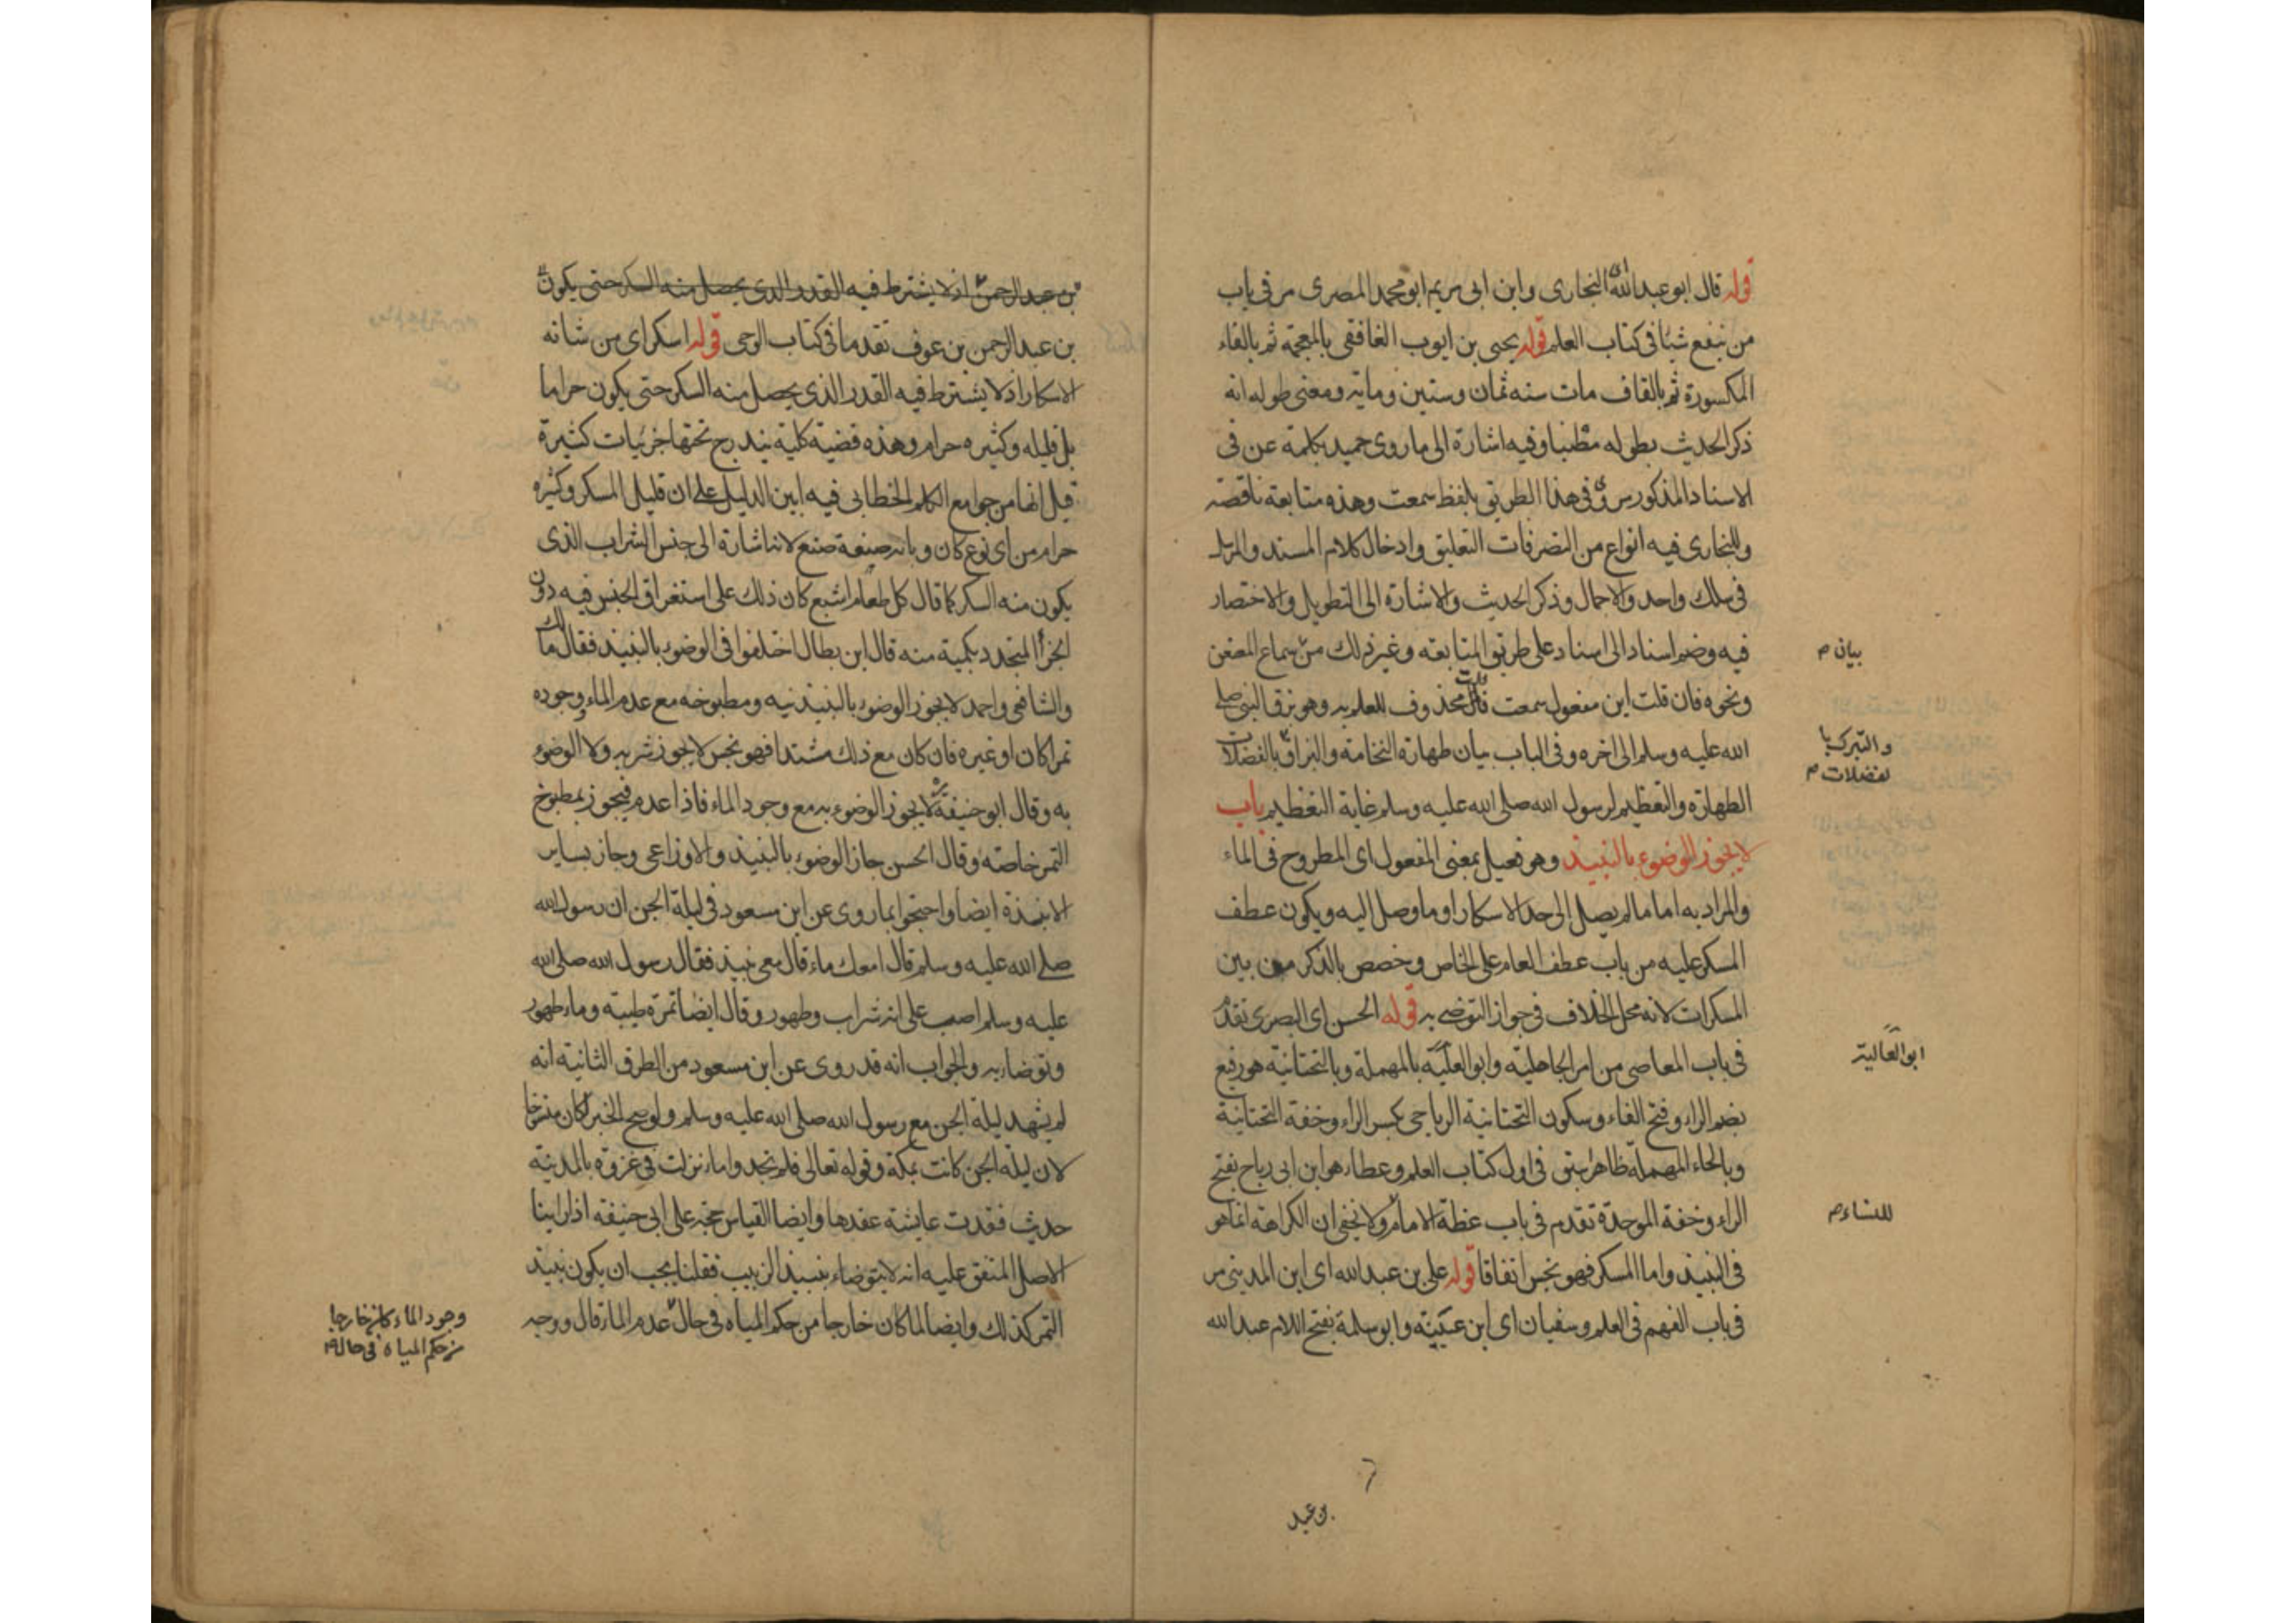 قوله قال ابو عبد الله البخارى وابن ابى مريم ابو محمد المصرى مر فى باب
من يتبع شيئا فى كتاب العلم قوله يحيى بن ايوب الغافقى بالمعجمة ثم بالفاء
المكسورة ثم بالقاف مات سنه ثمان وستين ومايه ومعنى طوله انه
ذكر الحديث بطوله مطنبا وفيه اشارة الى ما روى حميد بكلمة عن فى
الاسناد المذكور فى هذا الطريق بلفظ سمعت وهذه متابعة ناقصه
وللبخارى فيه انواع من التصرفات التعليق وادخال كلام المسند والمرسل
فى سلك واحد والاجمال وذكر الحديث والاشارة الى التطويل والاختصار
فيه وضم اسناد الى اسناد على طريق المتابعه وغير ذلك من سماع المعنعن
بيان
ونحوه فان قلت اين مفعول سمعت قلت محذوف للعلم به وهو بزق النبى صلى
الله عليه وسلم الى اخره وفى الباب بيان طهارة النخامة والبزاق بالفضلات
والتبرك با
لفضلات
الطهارة والتعظيم لرسول الله صلى الله عليه وسلم غاية التعظيم باب
لايجوز الوضوء بالنبيذ وهو فعيل بمعنى المفعول اى المطروح فى الماء
والمراد به اما مالم يصل الى حد الاسكار او ما وصل اليه ويكون عطف
المسكر عليه من باب عطف العام على الخاص وخصص بالذكر من بين
المسكرات لانه محل الخلاف فى جواز التوضى به قوله الحسن اى البصرى تقدم
فى باب المعاصى من امر الجاهلية وابو العلية بالمهملة وبالتحتانية هو رفيع
ابو العالية
بضم الراء وفتح الفاء وسكون التحتانية الرياحى بكسر الراء وخفة التحتانية
وبالحاء المهملة ظاهرا سبق فى اول كتاب العلم وعطاء هو ابن ابى رباح بفتح
الراء وخفة الموحدة تقدم فى باب عظة الامام ولا يخفى ان الكراهة انما هو
للنساء
فى النبيذ واما المسكر فهو نجس اتفاقا قوله على بن عبد الله اى ابن المدينى مر
فى باب الفهم فى العلم وسفيان اى ابن عيينه وابو سلمة بفتح اللام عبد الله
بن عبد
بن عبد الرحمن اذ لا يشترط فيه القدر الذى يحصل منه السكر حتى يكون
بن عبد الرحمن بن عوف تقدما فى كتاب الوحى قوله اسكر اى من شانه
الاسكار اذ لا يشترط فيه القدر الذى يحصل منه السكر حتى يكون حراما
بل قليله وكثيره حرام وهذه قضية كلية يندرج تحتها جزئيات كثيرة
قيل انها من جوامع الكلم الخطابى فيه ابين الدليل على ان قليل المسكر وكثيره
حرام من اى نوع كان وباى صنعة صنع لانه اشارة الى جنس الشراب الذى
يكون منه السكر كما قال كل طعام اشبع كان ذلك على استغراق الجنس فيه دون
الجزأ المتجدد بكمية منه قال ابن بطال اختلفوا فى الوضوء بالنبيذ فقال مالك
والشافعى واحمد لا يجوز الوضوء بالنبيذ نيه ومطبوخه مع عدم الماء ووجوده
تمرا كان او غيره فان كان مع ذلك مشتدا فهو نجس لا يجوز شربه ولا الوضوء
به وقال ابو حنيفة لا يجوز الوضوء به مع وجود الماء فاذا عدم فيجوز بمطبوخ
التمر خاصة وقال الحسن جاز الوضوء بالنبيذ والاوزاعى وجاز بساير
الانبذة ايضا واحتجوا بما روى عن ابن مسعود فى ليلة الجن ان رسول الله
صلى الله عليه وسلم قال امعك ماء قال معى نبيذ فقال رسول الله صلى الله
عليه وسلم اصبب على انه شراب وطهور وقال ايضا تمرة طيبة وماء طهور
وتوضا به والجواب انه قد روى عن ابن مسعود من الطرق الثانية انه
لم يشهد ليلة الجن مع رسول الله صلى الله عليه وسلم ولو صح الخبر لكان منسوخا
لان ليلة الجن كانت بمكة وقوله تعالى فلم تجدوا ماء نزلت فى غزوة بالمدينة
حديث فقدت عايشة عقدها وايضا القياس حجة على ابى حنيفه اذ راينا
الاصل المتفق عليه انه لايتوضاء بنبيذ الزبيب فقلنا يجب ان يكون نبيذ
التمر كذلك وايضا لما كان خارجا من حكم المياه فى حال عدم الماء قال ووجه
وجود الماء كان خارجا
من حكم المياه فى حال